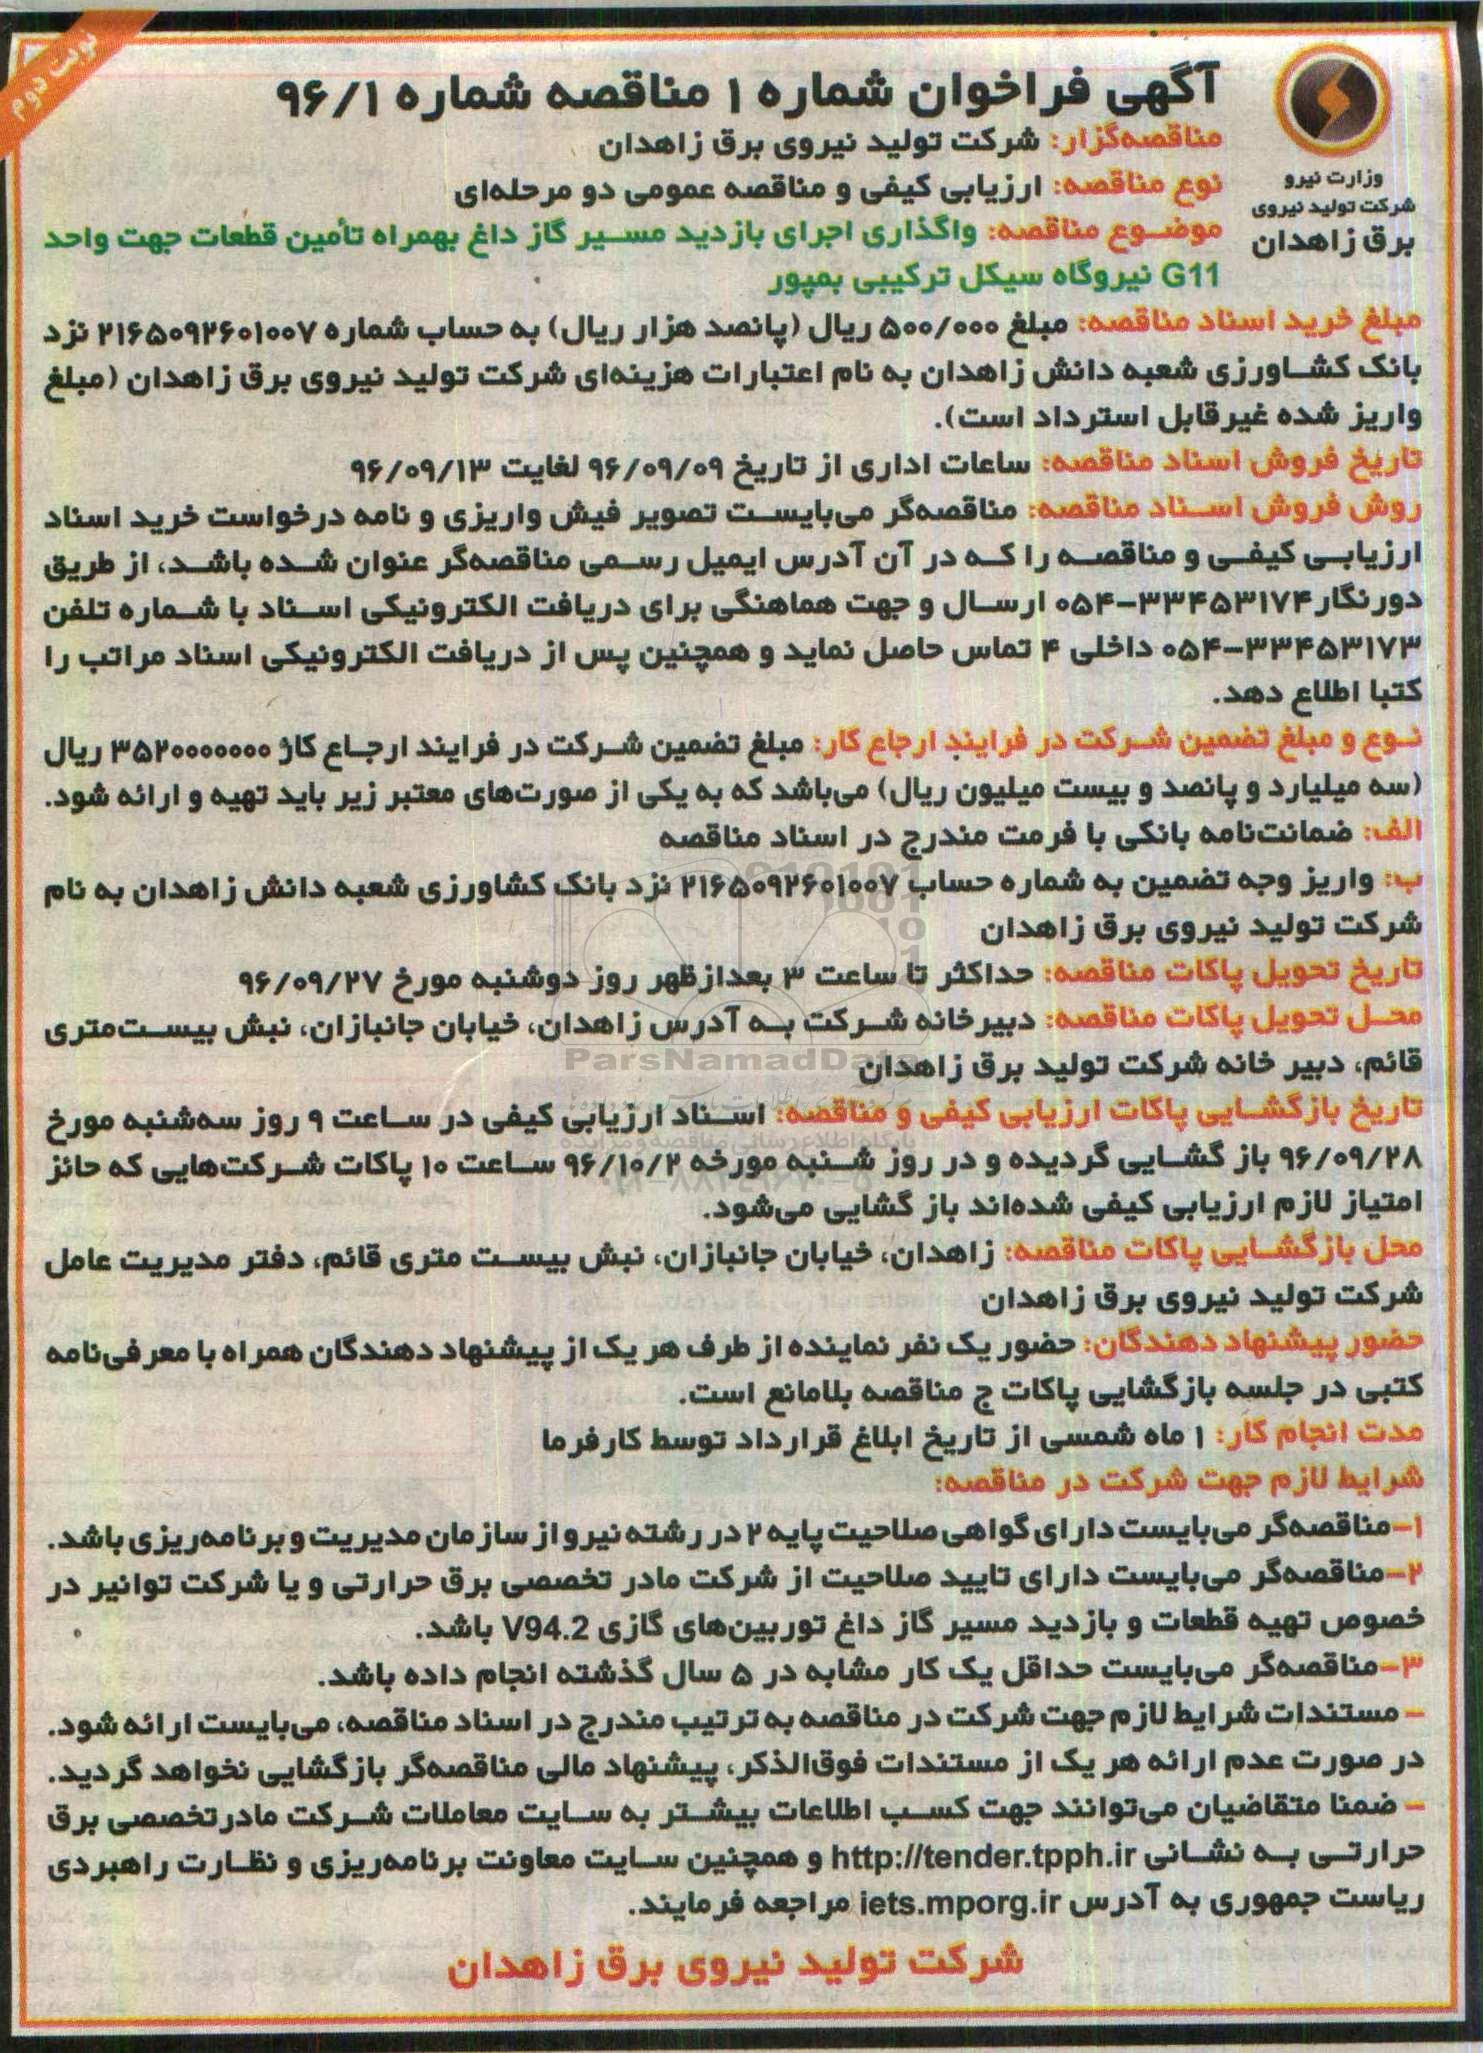 نوبت دوم
وزارت نیرو
شرکت تولید نیروی
برق زاهدان
آگهی فراخوان شماره ۱ مناقصه شماره ۹۶/۱
مناقصه‌گزار: شرکت تولید نیروی برق زاهدان
نوع مناقصه: ارزیابی کیفی و مناقصه عمومی دو مرحله‌ای
موضوع مناقصه: واگذاری اجرای بازدید مسیر گاز داغ بهمراه تأمین قطعات جهت واحد
G11 نیروگاه سیکل ترکیبی بمپور
مبلغ خرید اسناد مناقصه: مبلغ ۵۰۰/۰۰۰ ریال (پانصد هزار ریال) به حساب شماره ۲۱۶۵۰۹۲۶۰۱۰۰۷ نزد
بانک کشاورزی شعبه دانش زاهدان به نام اعتبارات هزینه‌ای شرکت تولید نیروی برق زاهدان (مبلغ
واریز شده غیرقابل استرداد است).
تاریخ فروش اسناد مناقصه: ساعات اداری از تاریخ ۹۶/۰۹/۰۹ لغایت ۹۶/۰۹/۱۳
روش فروش اسناد مناقصه: مناقصه‌گر می‌بایست تصویر فیش واریزی و نامه درخواست خرید اسناد
ارزیابی کیفی و مناقصه را که در آن آدرس ایمیل رسمی مناقصه‌گر عنوان شده باشد، از طریق
دورنگار ۳۳۴۵۳۱۷۴-۰۵۴ ارسال و جهت هماهنگی برای دریافت الکترونیکی اسناد با شماره تلفن
۳۳۴۵۳۱۷۳-۰۵۴ داخلی ۴ تماس حاصل نماید و همچنین پس از دریافت الکترونیکی اسناد مراتب را
کتبا اطلاع دهد.
نوع و مبلغ تضمین شرکت در فرایند ارجاع کار: مبلغ تضمین شرکت در فرایند ارجاع کار ۳۵۲۰۰۰۰۰۰۰ ریال
(سه میلیارد و پانصد و بیست میلیون ریال) می‌باشد که به یکی از صورت‌های معتبر زیر باید تهیه و ارائه شود.
الف: ضمانت‌نامه بانکی با فرمت مندرج در اسناد مناقصه
ب: واریز وجه تضمین به شماره حساب ۲۱۶۵۰۹۲۶۰۱۰۰۷ نزد بانک کشاورزی شعبه دانش زاهدان به نام
شرکت تولید نیروی برق زاهدان
تاریخ تحویل پاکات مناقصه: حداکثر تا ساعت ۳ بعدازظهر روز دوشنبه مورخ ۹۶/۰۹/۲۷
محل تحویل پاکات مناقصه: دبیرخانه شرکت به آدرس زاهدان، خیابان جانبازان، نبش بیست‌متری
قائم، دبیر خانه شرکت تولید برق زاهدان
ParsNamadData
تاریخ بازگشایی پاکات ارزیابی کیفی و مناقصه: اسناد ارزیابی کیفی در ساعت ۹ روز سه‌شنبه مورخ
پایگاه اطلاع رسانی مناقصه و مزایده
۹۶/۰۹/۲۸ باز گشایی گردیده و در روز شنبه مورخه ۹۶/۱۰/۲ ساعت ۱۰ پاکات شرکت‌هایی که حائز
امتیاز لازم ارزیابی کیفی شده‌اند باز گشایی می‌شود.
محل بازگشایی پاکات مناقصه: زاهدان، خیابان جانبازان، نبش بیست متری قائم، دفتر مدیریت عامل
شرکت تولید نیروی برق زاهدان
حضور پیشنهاد دهندگان: حضور یک نفر نماینده از طرف هر یک از پیشنهاد دهندگان همراه با معرفی‌نامه
کتبی در جلسه بازگشایی پاکات ج مناقصه بلامانع است.
مدت انجام کار: ۱ ماه شمسی از تاریخ ابلاغ قرارداد توسط کارفرما
شرایط لازم جهت شرکت در مناقصه:
۱-مناقصه‌گر می‌بایست دارای گواهی صلاحیت پایه ۲ در رشته نیرو از سازمان مدیریت و برنامه‌ریزی باشد.
۲-مناقصه‌گر می‌بایست دارای تایید صلاحیت از شرکت مادر تخصصی برق حرارتی و یا شرکت توانیر در
خصوص تهیه قطعات و بازدید مسیر گاز داغ توربین‌های گازی V94.2 باشد.
۳-مناقصه‌گر می‌بایست حداقل یک کار مشابه در ۵ سال گذشته انجام داده باشد.
- مستندات شرایط لازم جهت شرکت در مناقصه به ترتیب مندرج در اسناد مناقصه، می‌بایست ارائه شود.
در صورت عدم ارائه هر یک از مستندات فوق‌الذکر، پیشنهاد مالی مناقصه‌گر بازگشایی نخواهد گردید.
- ضمنا متقاضیان می‌توانند جهت کسب اطلاعات بیشتر به سایت معاملات شرکت مادرتخصصی برق
حرارتی به نشانی http://tender.tpph.ir و همچنین سایت معاونت برنامه‌ریزی و نظارت راهبردی
ریاست جمهوری به آدرس iets.mporg.ir مراجعه فرمایند.
شرکت تولید نیروی برق زاهدان